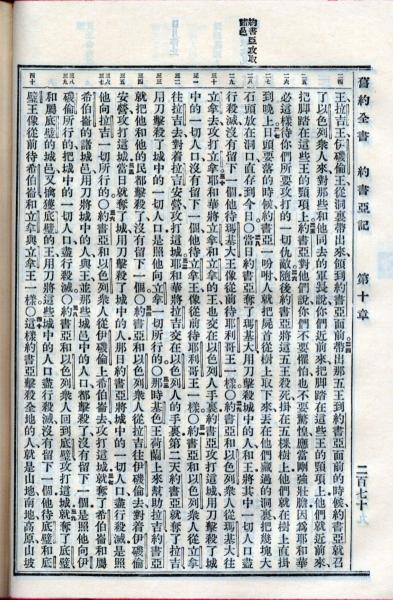 舊約全書 約書亞記 第十章 二百七十
約書亞攻取諸邑
王拉吉王伊磯倫王從洞裏帶出來領到約書亞面前帶出那五王到約書亞面前的時候約書亞就召
了以色列衆人來對那些和他同去的軍長說你們近前來把脚踏在這些王的頸項上他們就近前來
把脚踏在這些王的頸項上約書亞對他們說你們不要懼怕也不要驚惶應當剛強壯膽因爲耶和華
必這樣待你們所要攻打的一切仇敵隨後約書亞將這五王殺死掛在五棵樹上他們就在樹上直掛
到晚上日頭要落的時候約書亞一吩咐人就把屍首從樹上取下來丟在他們藏過的洞裏把幾塊大
石頭放在洞口直存到今日○當日約書亞奪了瑪基大用刀擊殺城中的人和王將其中一切人口盡
行殺滅沒有留下一個他待瑪基大王像從前待耶利哥王一樣○約書亞和以色列衆人從瑪基大往
立拿去攻打立拿耶和華將立拿和立拿的王也交在以色列人手裏約書亞攻打這城用刀擊殺了城
中的一切人口沒有留下一個他待立拿王像從前待耶利哥王一樣○約書亞和以色列衆人從立拿
往拉吉去對着拉吉安營攻打這城耶和華將拉吉交在以色列人的手裏第二天約書亞就奪了拉吉
用刀擊殺了城中的一切人口是照他向立拿一切所行的○那時基色王荷蘭上來幫助拉吉約書亞
就把他和他的民都擊殺了沒有留下一個○約書亞和以色列衆人從拉吉往伊磯倫去對着伊磯倫
安營攻打這城當日就奪了城用刀擊殺了城中的人那日約書亞將城中的一切人口盡行殺滅是照
他向拉吉一切所行的○約書亞和以色列衆人從伊磯倫上希伯崙去攻打這城就奪了希伯崙和屬
希伯崙的諸城邑用刀將城中的人與王並那些城邑中的人口都擊殺了沒有留下一個是照他向伊
磯倫所行的把城中的一切人口盡行殺滅○約書亞和以色列衆人回到底璧攻打這城就奪了底璧
和屬底璧的城邑又擒獲底璧的王用刀將這些城中的人口盡行殺滅沒有留下一個他待底璧和底
璧王像從前待希伯崙和立拿與立拿王一樣○這樣約書亞擊殺全地的人就是山地南地高原山坡